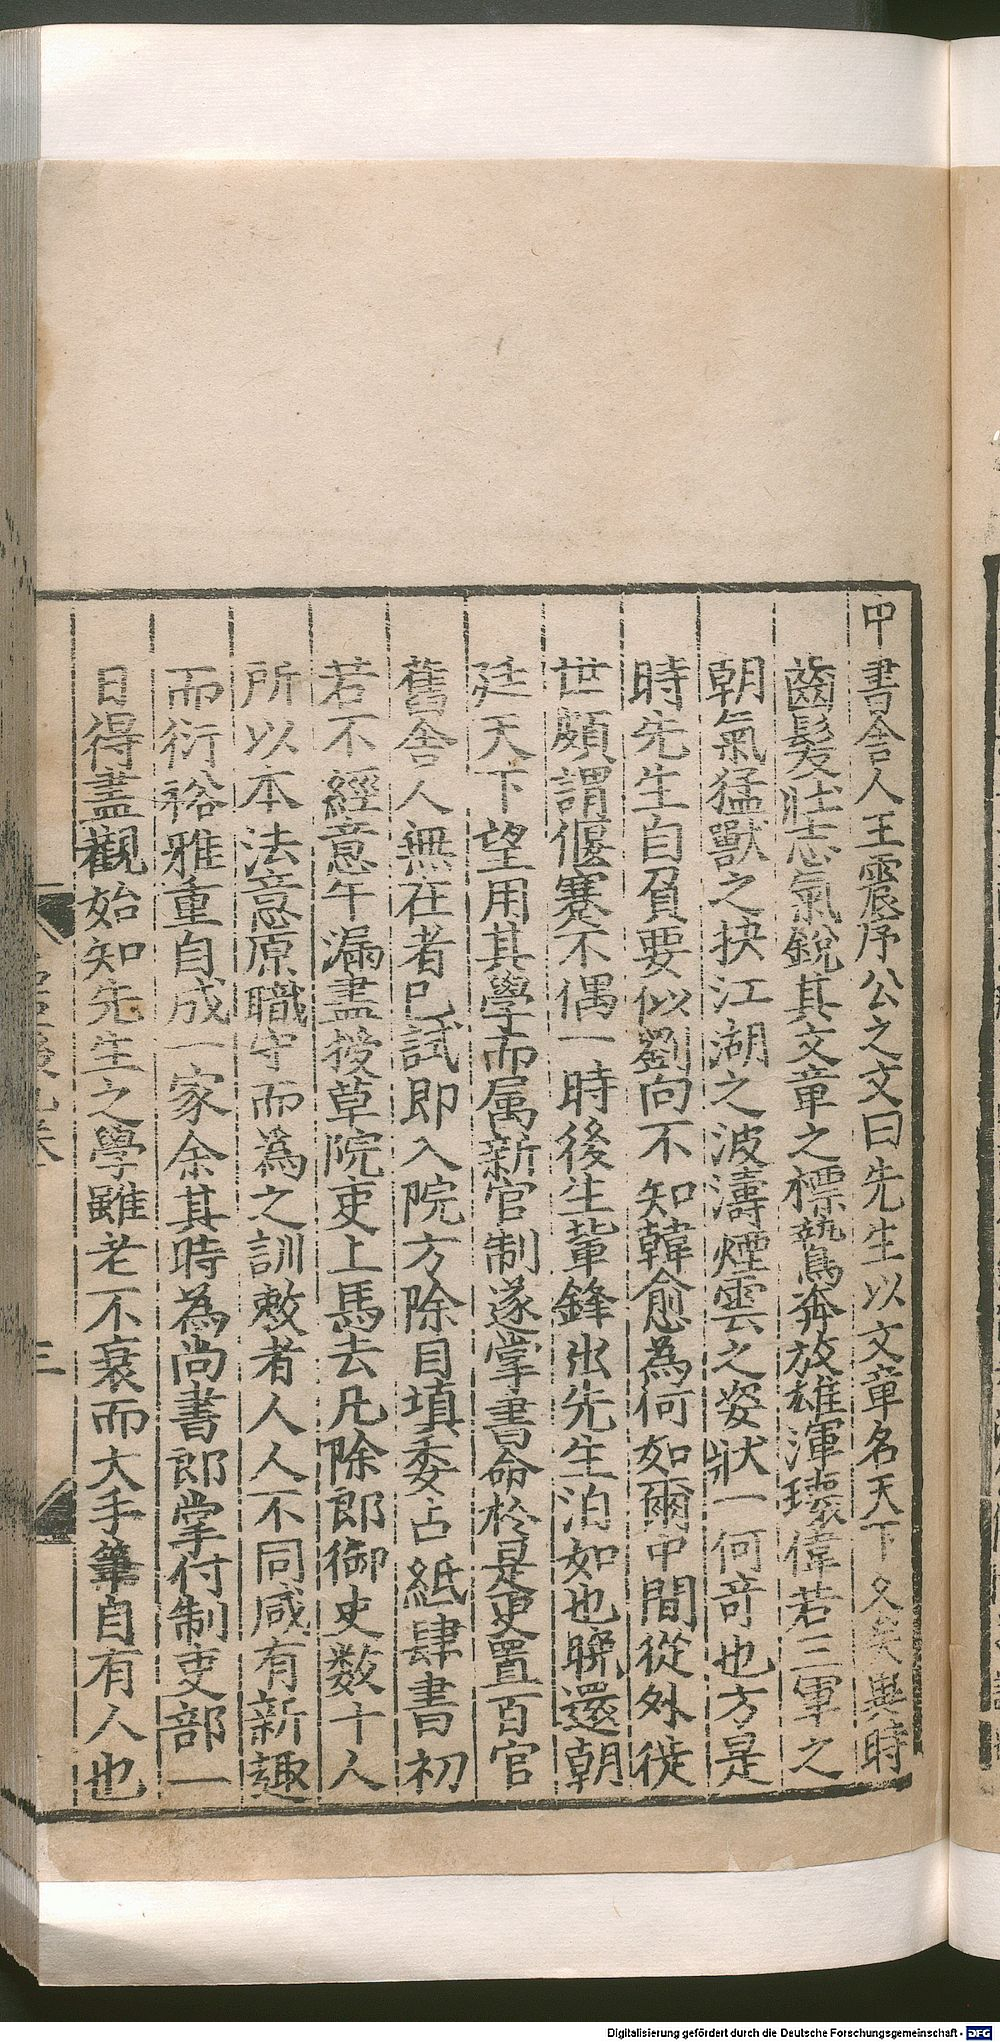 中書舍人王震序公之文曰先生以文章名天下久矣異時
齒髮壯志氣銳其文章之標鷙奔放雄渾瓌偉若三軍之
朝氣猛獸之抉江湖之波濤煙雲之姿狀一何奇也方是
時先生自負要似劉向不知韓愈為何如爾中間從外徙
世頗謂偃蹇不偶一時後生輩鋒出先生泊如也晚還朝
廷天下望用其學而属新官制遂掌書命於是更置百官
舊舍人無在者已試即入院方除目填委占紙肆書初
若不經意午漏盡授草院吏上馬去凡除郎御史数十人
所以本法意原職守而為之訓敕者人人不同咸有新趣
而衍裕雅重自成一家余其時為尚書郎掌付制吏部一
日得盡觀始知先生之學雖老不衰而大手筆自有人也
三
Digitalisierung gefördert durch die Deutsche Forschungsgemeinschaft - DFG